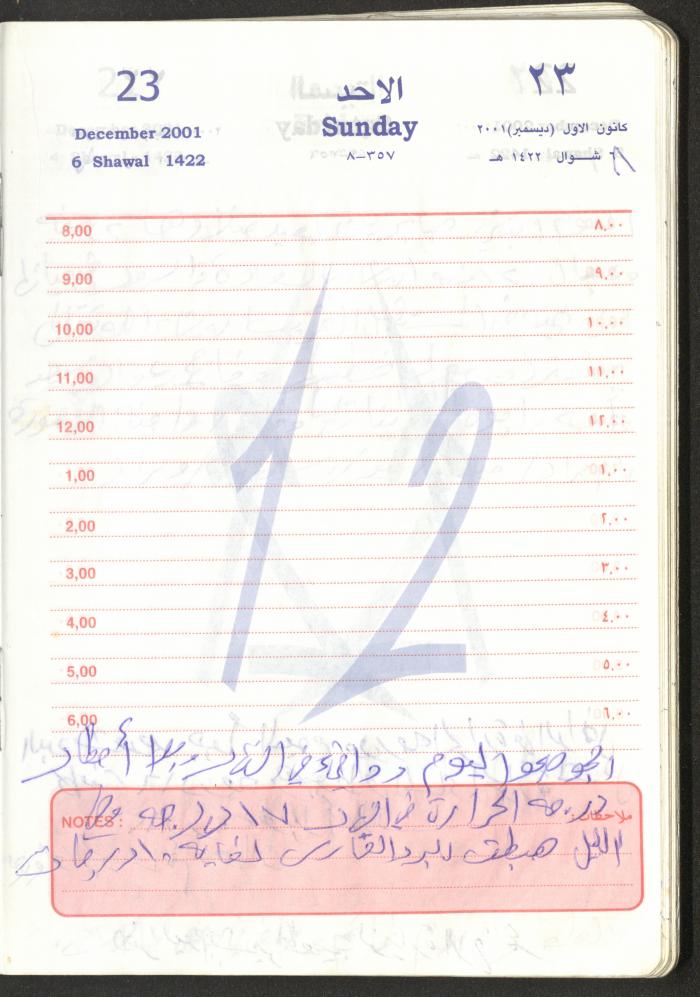 23 الاحد ٢٣
December 2001 Sunday كانون الاول (ديسمبر) ٢٠٠١
6 Shawal 1422 ٨-٣٥٧ ٦ شوال ١٤٢٢ هـ
8,00 ٨,٠٠
9,00 ٩,٠٠
10,00 ١٠,٠٠
11,00 ١١,٠٠
12,00 ١٢,٠٠
1,00 ١,٠٠
2,00 ٢,٠٠
3,00 ٣,٠٠
4,00 ٤,٠٠
5,00 ٥,٠٠
6,00 ٦,٠٠
12
الجو صحو اليوم ودافئ في النهار وبلا أمطار
NOTES: ملاحظات:
درجه الحرارة في النهار ١٧ درجه
الليل هبطت البرد القارس لغاية ١٠ درجات